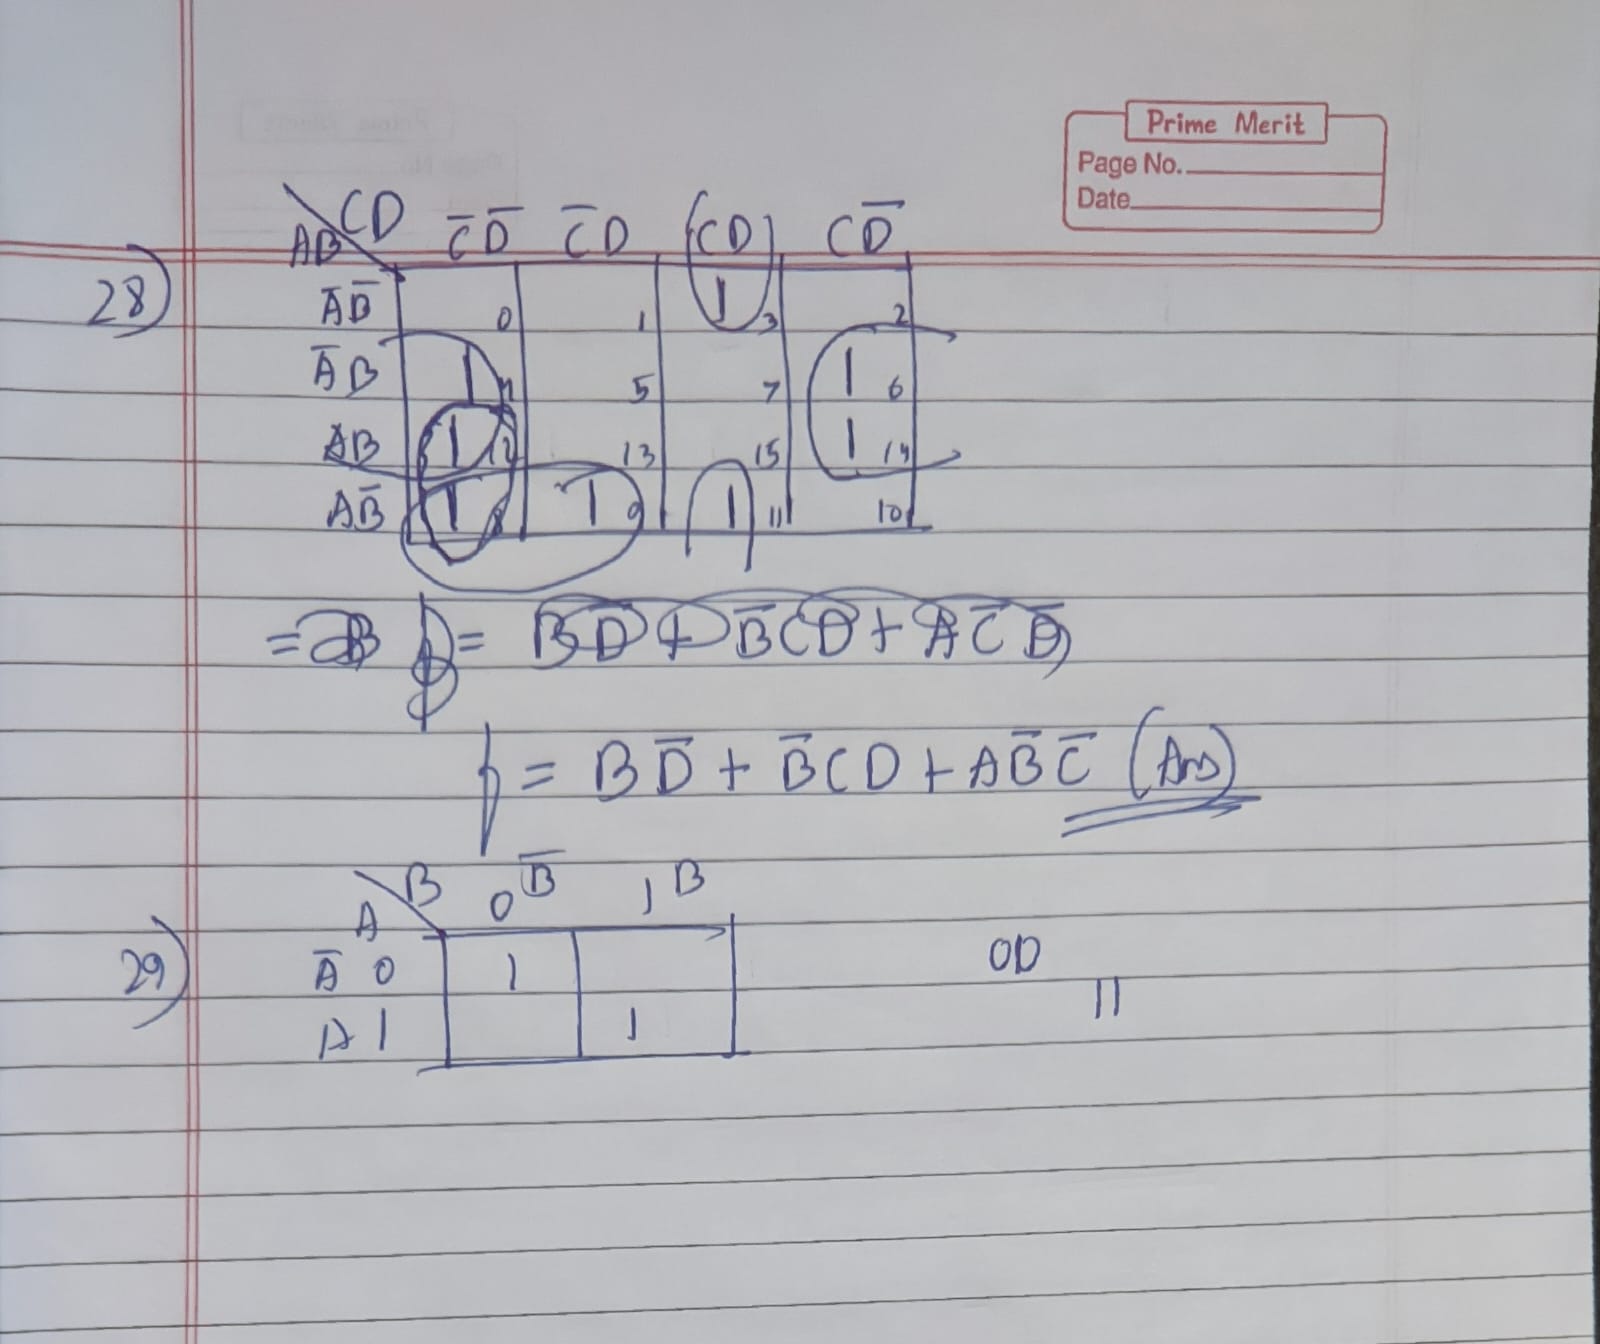 Prime Merit
Page No.
Date
AB CD C̅D̅ C̅D CD CD̅
28)
A̅B̅ 0 1 1 3 2
A̅B 1 4 5 7 1 6
AB 1 12 13 15 1 14
AB̅ 1 8 1 9 1 11 10
= BD̅ + B̅CD + AC̅D̅
f = BD̅ + B̅CD + AB̅C̅ (Ans)
A B 0 B̅ 1 B
29) A̅ 0 1
A 1 1
OD
11